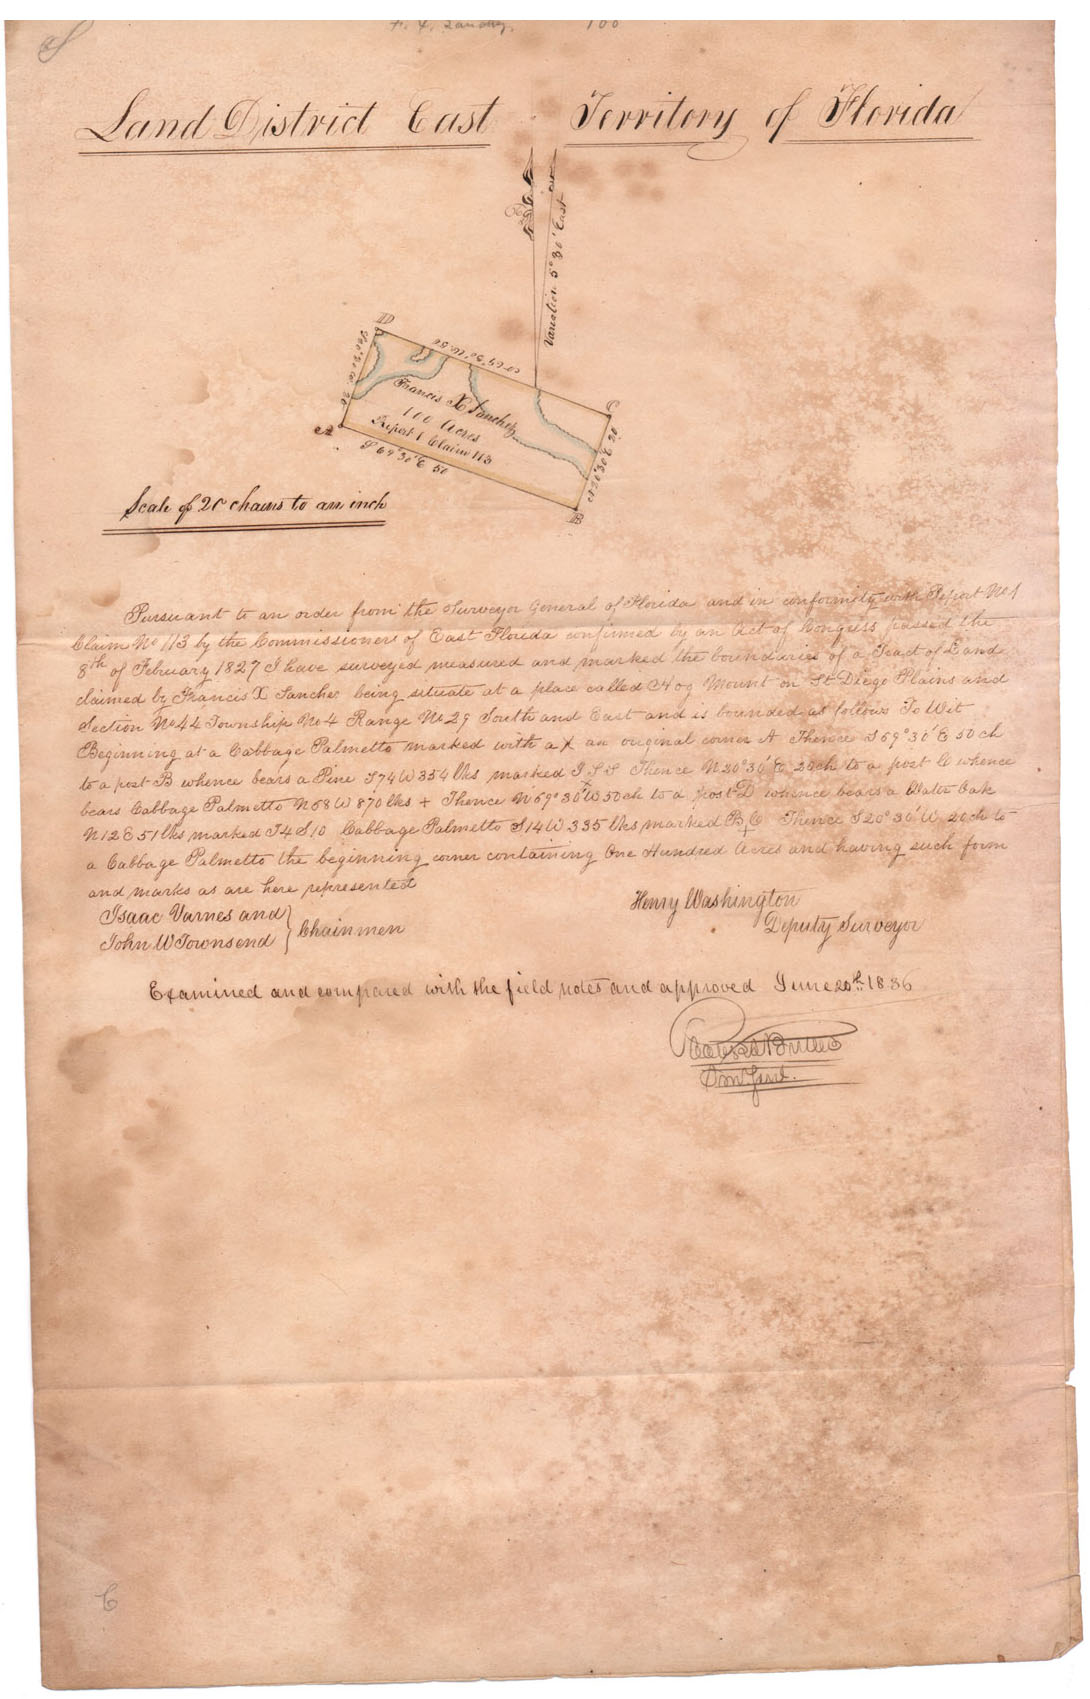 100
Land District East Territory of Florida
Variation 5° 30' East
D
N 69° 30' W. 50
S 20° 30' W. 20
Francis X Sanchez
100 Acres
Report 1 Claim 113
C
A
S 69° 30' E 50
N 20° 30' E 20
B
Scale of 20 chains to an inch
Pursuant to an order from the Surveyor General of Florida and in conformity with Report No 1
Claim No 113 by the Commissioners of East Florida confirmed by an Act of Congress passed the
8th of February 1827 I have surveyed measured and marked the boundaries of a Tract of Land
claimed by Francis X Sanchez being situate at a place called Hog Mount on St Diego Plains and
Section No 44 Township No 4 Range No 29 South and East and is bounded as follows To Wit
Beginning at a Cabbage Palmetto marked with a X an original corner A Thence S 69° 30' E 50 ch
to a post B whence bears a Pine S 74 W 354 lks marked Thence N 20° 30' E 20 ch to a post C whence
bears Cabbage Palmetto N 68 W 870 lks + Thence N 69° 30' W 50 ch to a post D whence bears a Water Oak
N 12 E 51 lks marked Cabbage Palmetto S 14 W 335 lks marked Thence S 20° 30' W 20 ch to
a Cabbage Palmetto the beginning corner containing One Hundred Acres and having such form
and marks as are here represented
Isaac Varnes and
John W Townsend } Chainmen
Henry Washington
Deputy Surveyor
Examined and compared with the field notes and approved June 20th 1836
C